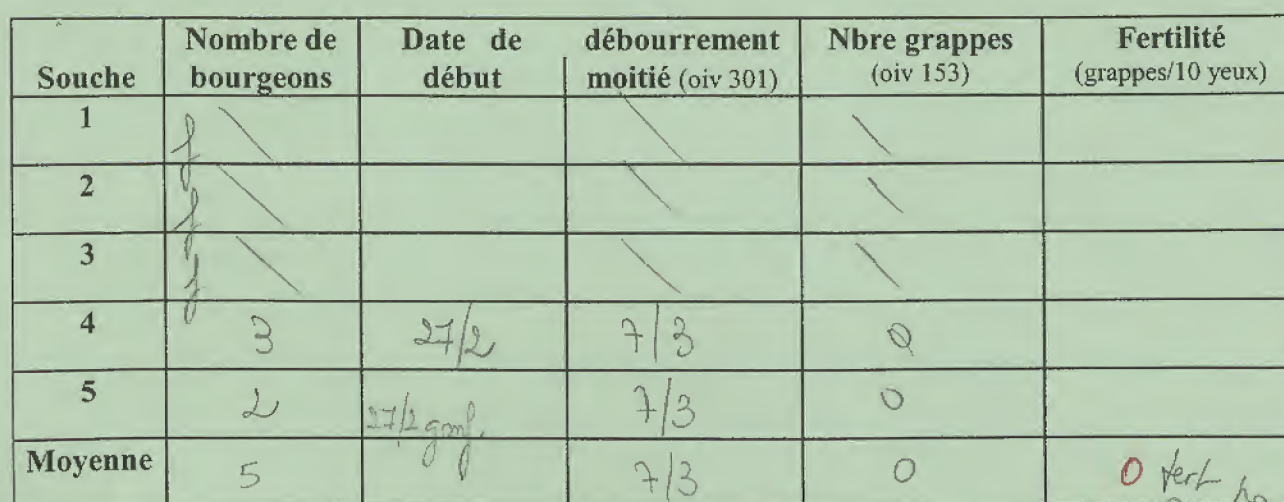 Souche | Nombre de bourgeons | Date de début | débourrement moitié (oiv 301) | Nbre grappes (oiv 153) | Fertilité (grappes/10 yeux)
1 | f \ | | \ | \ |
2 | f \ | | \ | \ |
3 | f \ | | \ | \ |
4 | 3 | 27/2 | 7/3 | 0 |
5 | 2 | 27/2 gonf. | 7/3 | 0 |
Moyenne | 5 | | 7/3 | 0 | 0 fert